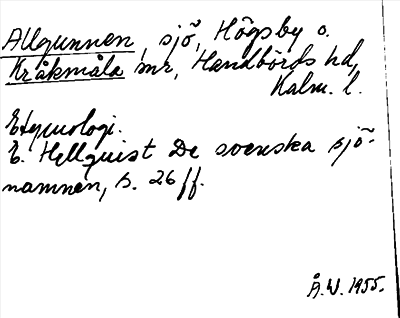 Allgunnen, sjö, Högsby o.
Kråkmåla snr, Handbörds hd,
Kalm. l.
Etymologi.
E. Hellquist De svenska sjö-
namnen, s. 26 ff.
Å.W. 1955.